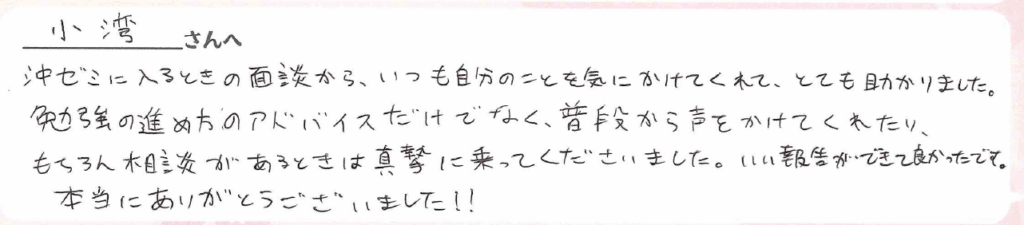 小湾さんへ
沖ゼミに入るときの面談から、いつも自分のことを気にかけてくれて、とても助かりました。
勉強の進め方のアドバイスだけでなく、普段から声をかけてくれたり、
もちろん相談があるときは真摯に乗ってくださいました。いい報告ができて良かったです。
本当にありがとうございました!!